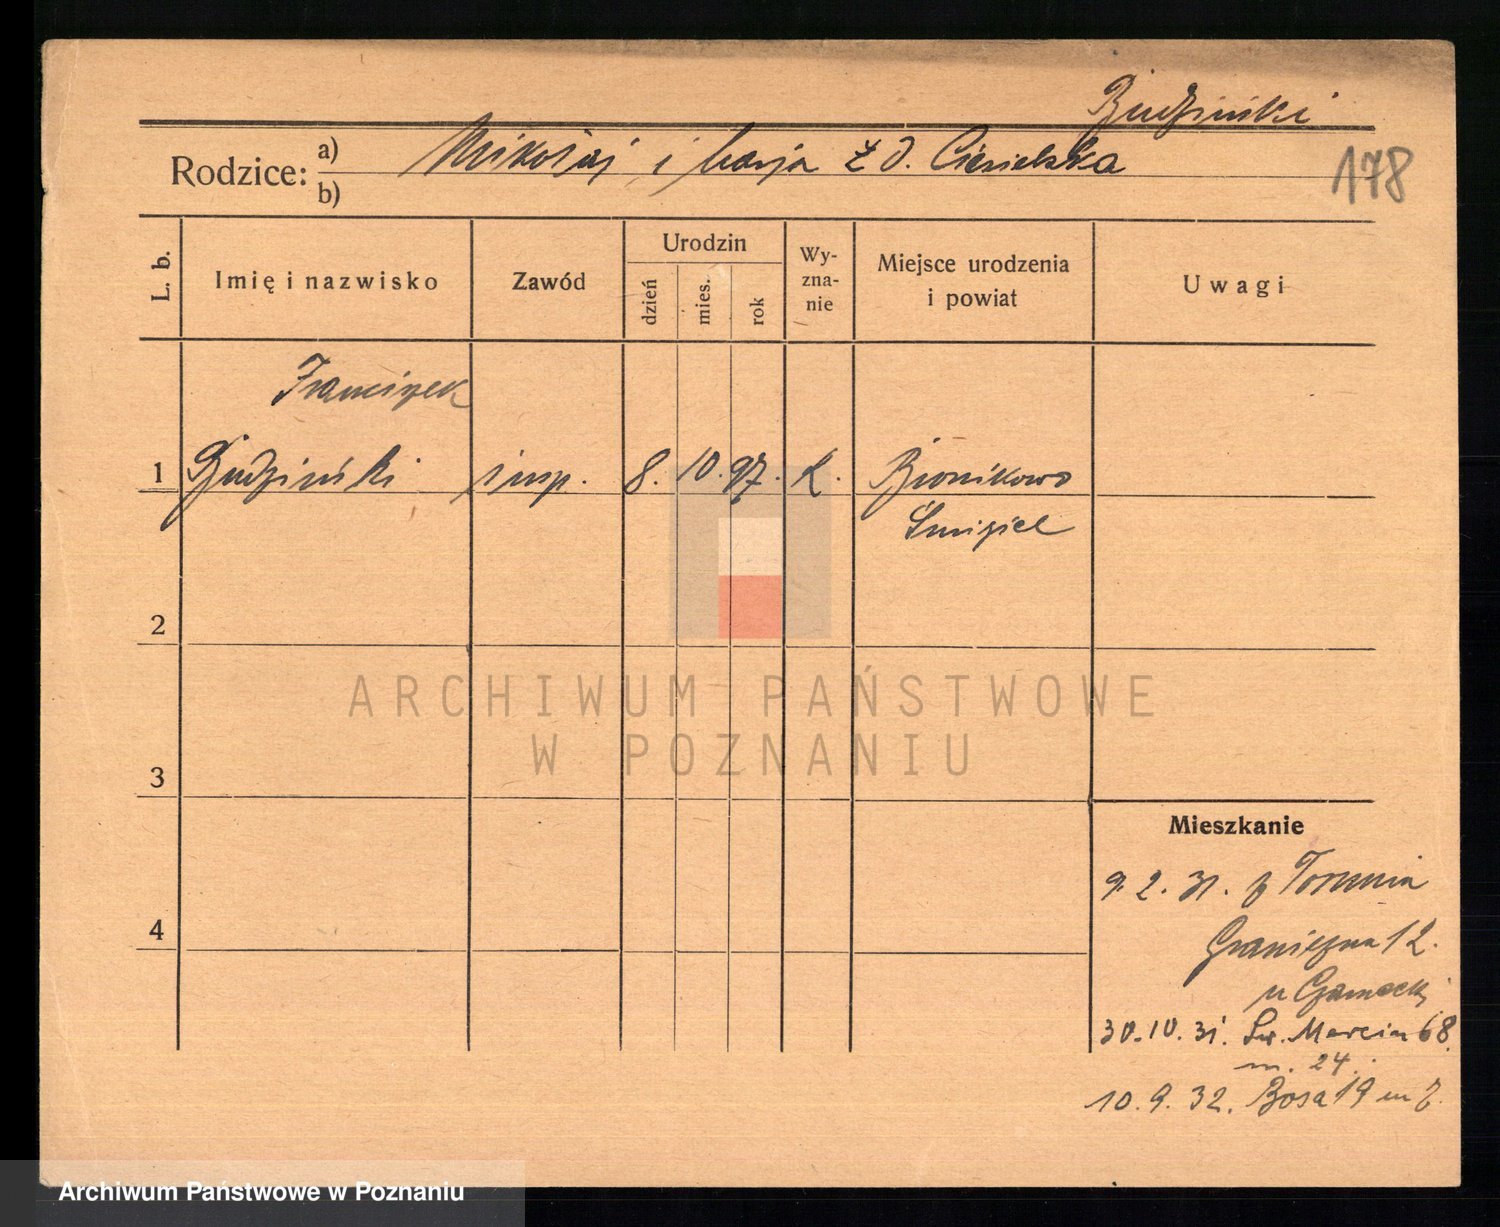 Budziński
Rodzice: a) Mikołaj i Marja z d. Ciesielska
b)
178
L. b.
Imię i nazwisko
Zawód
Urodzin
dzień
mies.
rok
Wy-
zna-
nie
Miejsce urodzenia
i powiat
Uwagi
Franciszek
1 Budziński insp. 8. 10. 97. k. Bronikowo
Śmigiel
2
3
4
ARCHIWUM PAŃSTWOWE
W POZNANIU
Mieszkanie
9. 2. 31. z Torunia
Graniczna 12.
u Czarnecki
30. 10. 31. Św. Marcin 68.
m. 24.
10. 9. 32. Bosa 19 m 7.
Archiwum Państwowe w Poznaniu